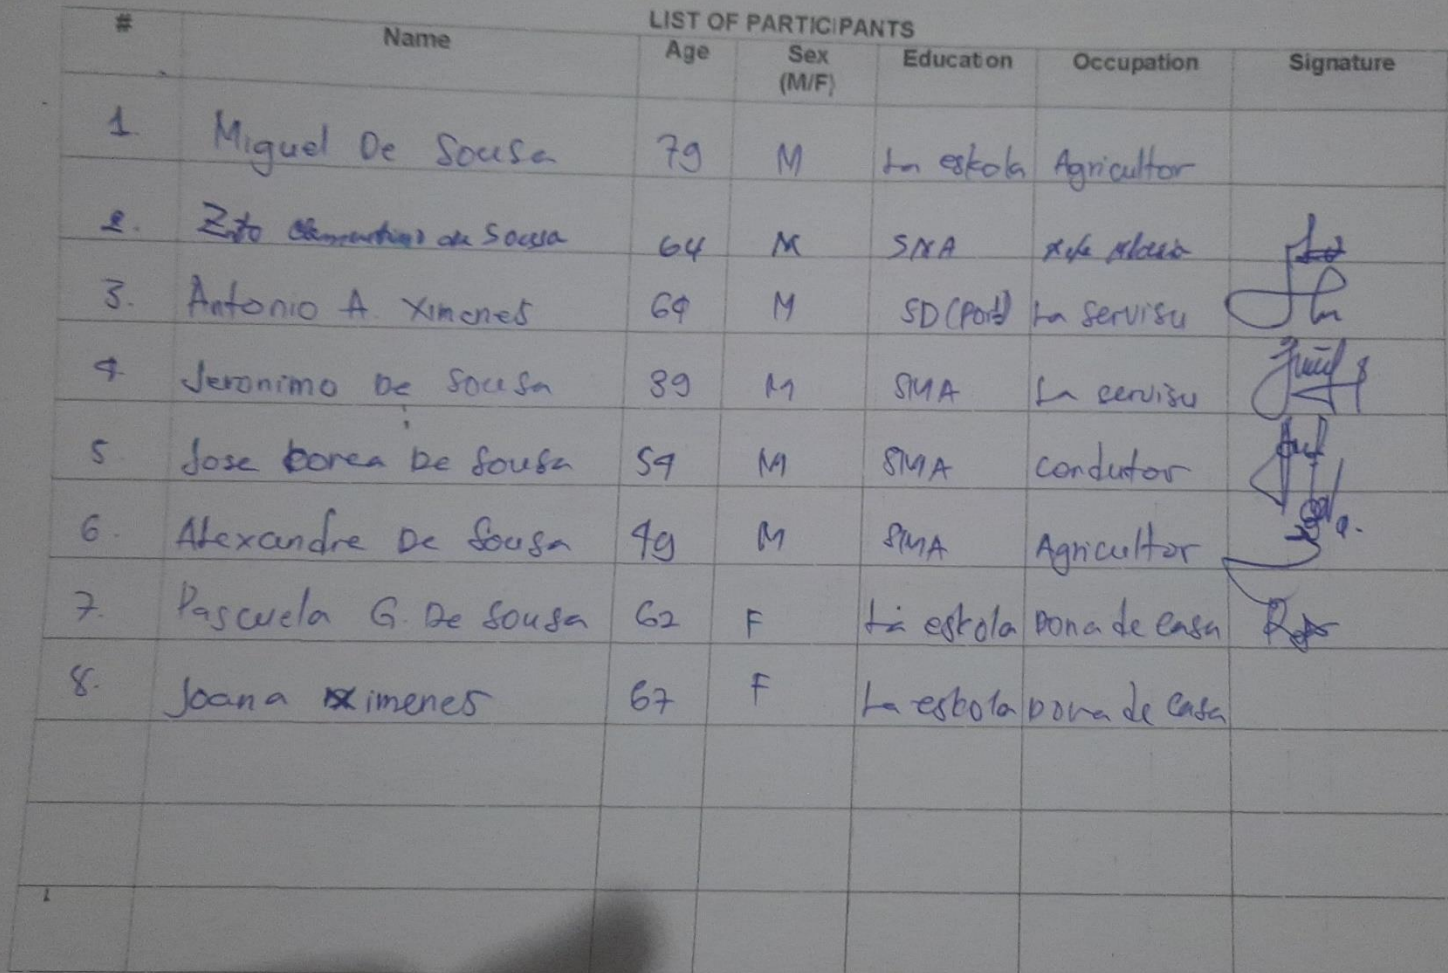 LIST OF PARTICIPANTS
# Name Age Sex (M/F) Education Occupation Signature
1. Miguel De Sousa 79 M La eskola Agricultor
2. Zito de Sousa 64 M SMA
3. Antonio A. Ximenes 64 M SD (Port) La servisu
4. Jeronimo De Sousa 39 M SMA La servisu
5. Jose De Sousa 54 M SMA condutor
6. Alexandre De Sousa 49 M SMA Agricultor
7. Pascuela G. De Sousa 62 F La eskola Dona de casa
8. Joana Ximenes 67 F La eskola Dona de casa